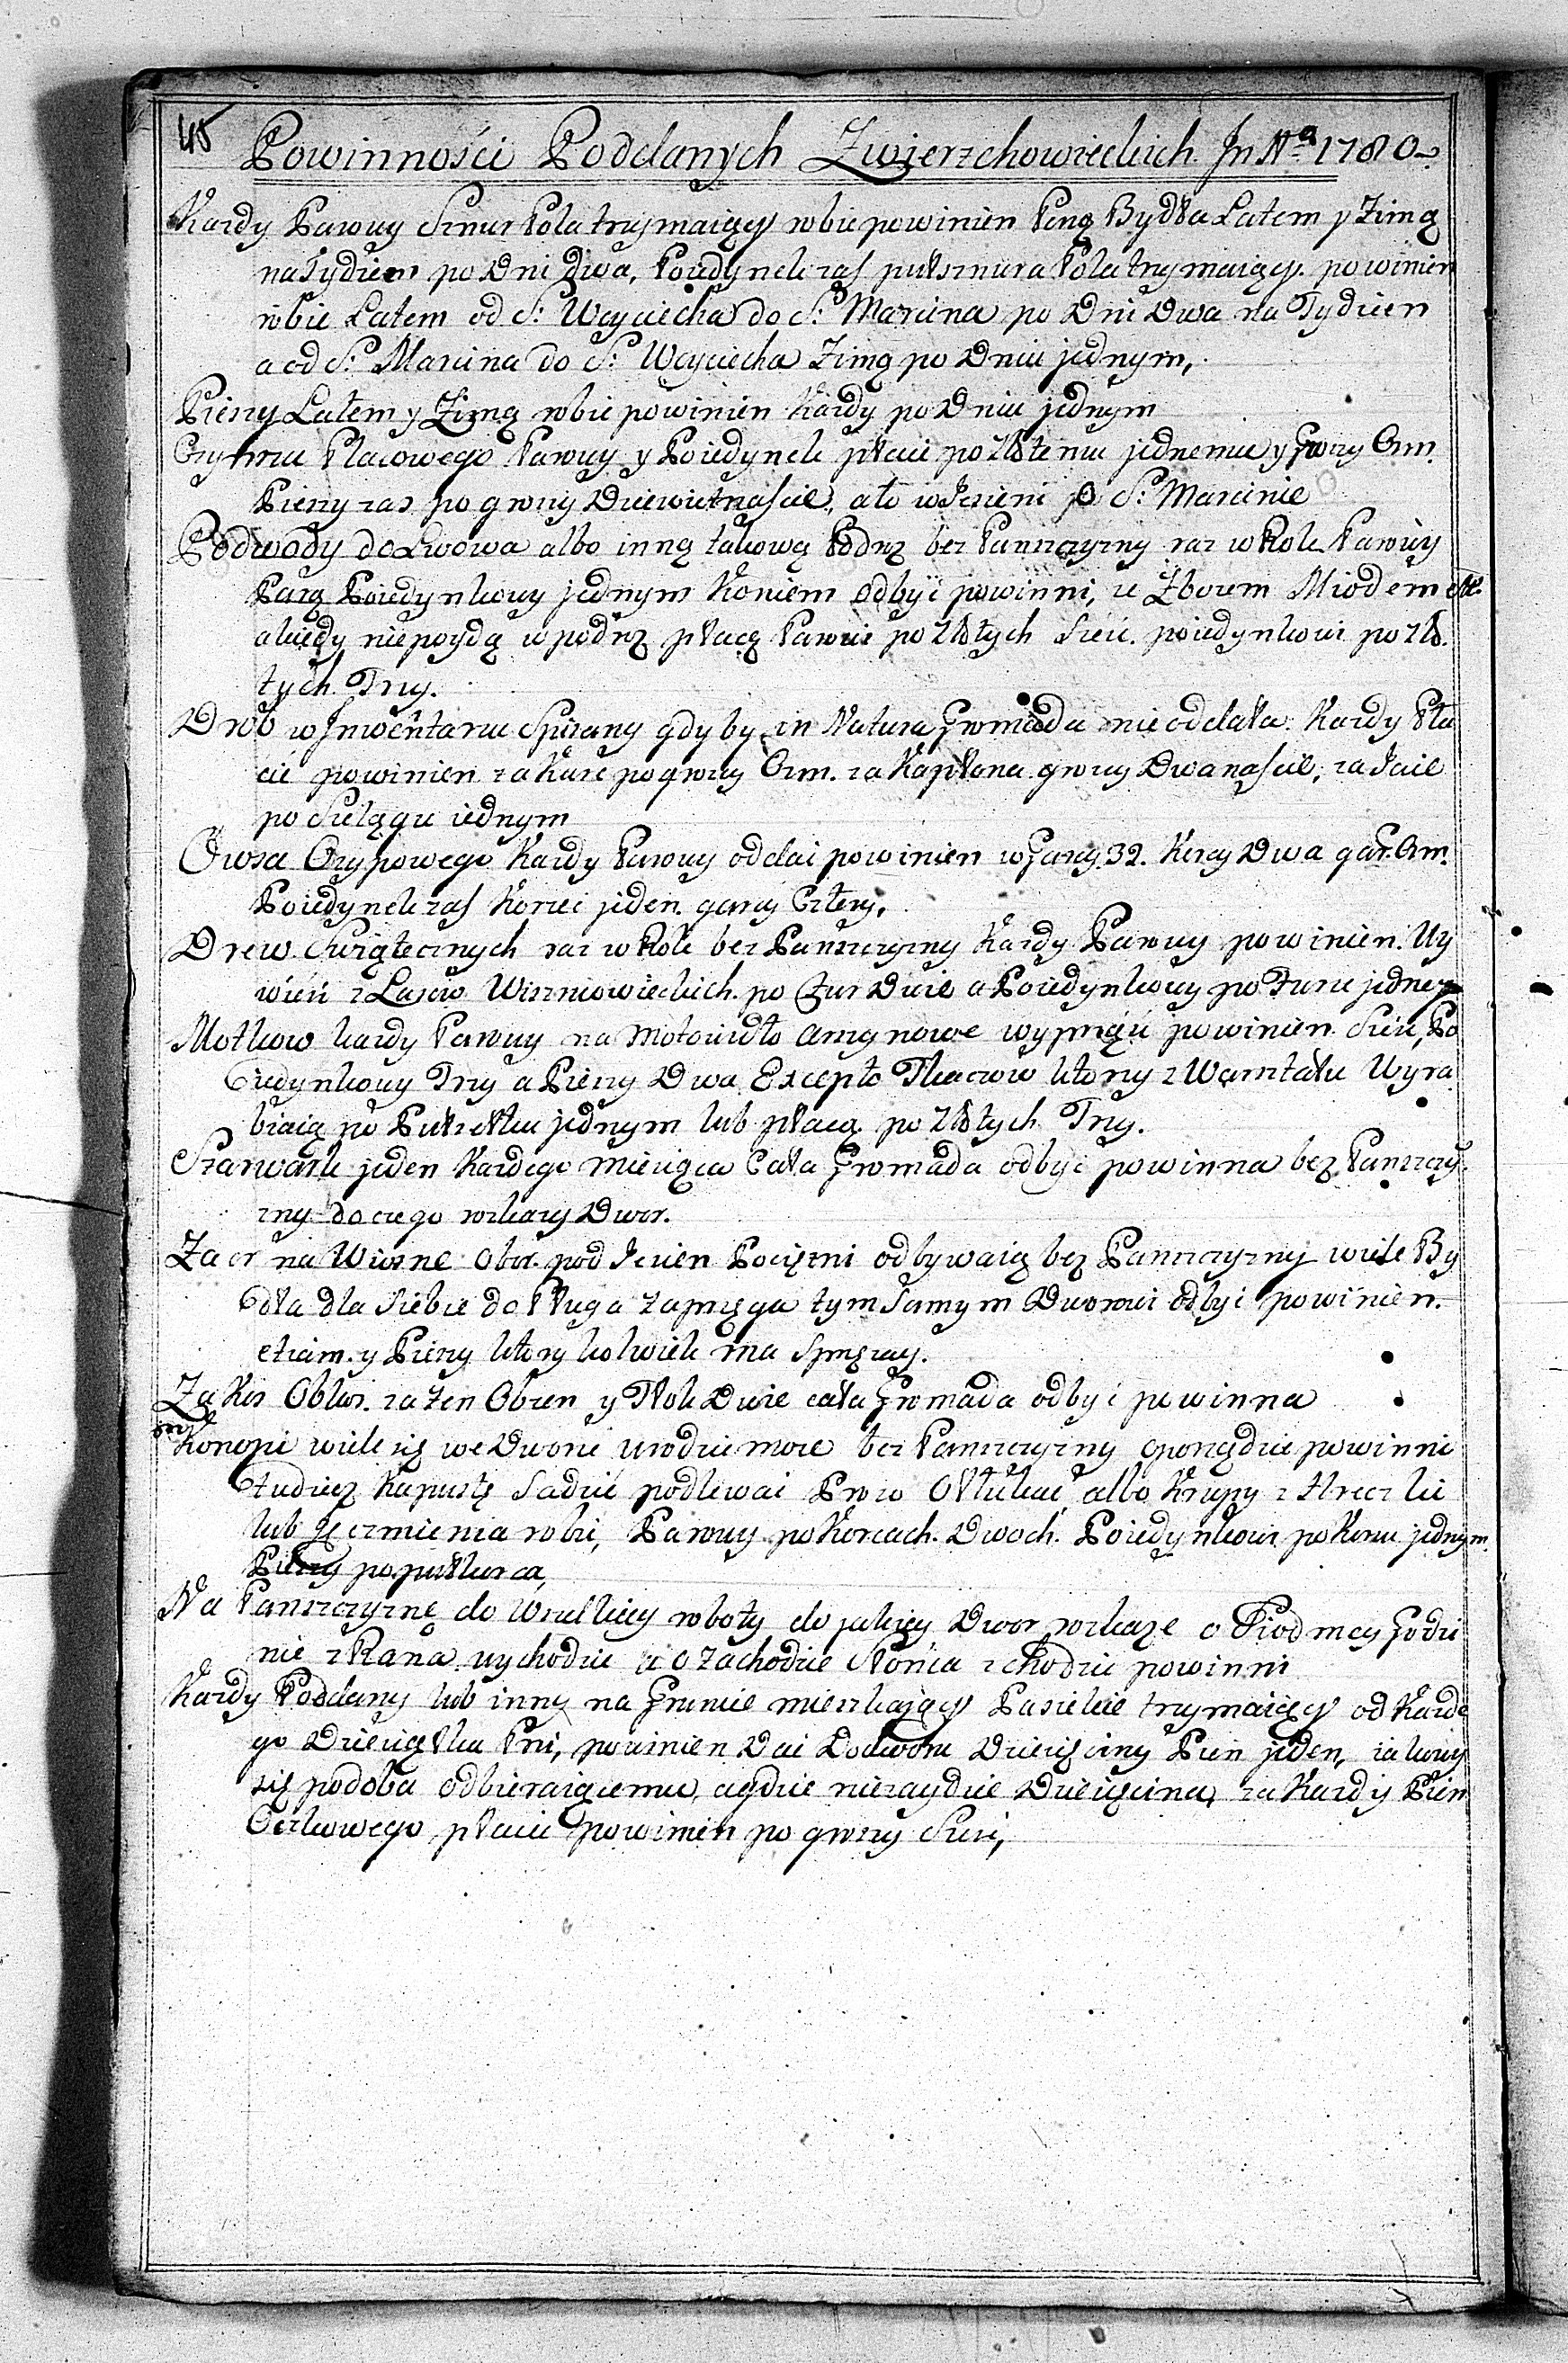 45
Powinności Poddanych Zwierzchowieckich In Aº 1780
Kardy Parowy Sznur Pola trzymaiący robic powinien Parą Bydła Latem y Zimą
na Tydzien po Dni Dwa, Poiedynek zas pułsznura Pola trzymaiący powinien
robic Latem od S: Woyciecha do S: Marcina po Dni Dwa na Tydzien
a od S: Marcina do S: Woyciecha Zimą po Dniu jednym,
Pieszy Latem y Zimą robic powinien Kardy po Dniu jednym
Czynszu Placowego Parowy y Poiedynek płacic po Złłtemu jednemu y Groszy Osm.
Pieszy zas po groszy Dziewietnascie, a to w Jesieni po S: Marcinie
Podwody do Lwowa albo inną takową Podrz bez Panszczyzny raz w Rok Parowy
Parą Poiedynkowy jednym Koniem odbyć powinni, ze Zbozem Miodem etc.
a kiedy nie poydą w podrz płacą Parowi po Złłtych Szesc poiedynkowi po Zło
tych Trzy.
Drob w Inwentarzu Spisany gdyby in Natura Gromada nie oddała. Kardy Pła
cic powinien za Kurę po groszy Osm. za Kapłona groszy Dwanascie, za Jaie
po Szelągu iednym
Owsa Osypowego Kardy Parowy oddać powinien w Garcy 32. Korcy Dwa gar: Osm.
Poiedynek zas Korzec jeden. garcy Cztery,
Drew Swiątecznych raz w Rok bez Panszczyzny Kardy Parowy powinien. Wy
wieść z Lasow Wiszniowieckich. po Fur Dwie a Poiedynkowy po Furze jedney
Motkow kardy Parowy na motowidło Osmynowe wyprząść powinien Szesc, Po
iedynkowy Trzy a Pieszy Dwa Excepto Tkaczow ktorzy z Warsztatu Wyra
biaią po Pułsetku jednym lub płacą po Złłtych Trzy.
Szarwark jeden Kardego miesiąca Cała Gromada odbyć powinna bez Panszczy
zny do czego rozkazy Dwor.
Za or na Wiosne Obor. pod Jesien Pociężni odbywaią bez Panszczyzny wiele By
dła dla Siebie do Pługa zaprzęga tym Samym Dworowi odbyć powinien.
etiam y Pieszy ktory kolwiek ma Sprzęzay.
Za Kos Obkos. za żen Obzen y Tłok Dwie cała Gromada odbyć powinna
Konopi wiele się we Dworze urodzic moze bez Panszczyzny oporządzic powinni
tudziez Kapustę Sadzić podlewać Proso Obtłukać albo Krupy z Hreczki
lub Jęczmienia robić, Parowy po Korcach Dwoch. Poiedynkowi po Korcu jednym
Pieszy po pułkorca,
Na Panszczyznę do Wszelkiey roboty do jakiey Dwor rozkaze o Siodmey Godzi
nie z Rana wychodzic a o zachodzie Słońca schodzic powinni
Kardy Poddany lub inny na Gruncie mieszkaiący Pasiekie trzymaiący od Karde
go Dziesiątka Pni, powinien Dać Do dworu Dziesięciny Pien jeden, iakowy
się podoba odbieraiącemu, a gdzie nie zaydzie Dziesięcina, za Kardy Pien
Oczkowego płacic powinien po groszy Szesc,